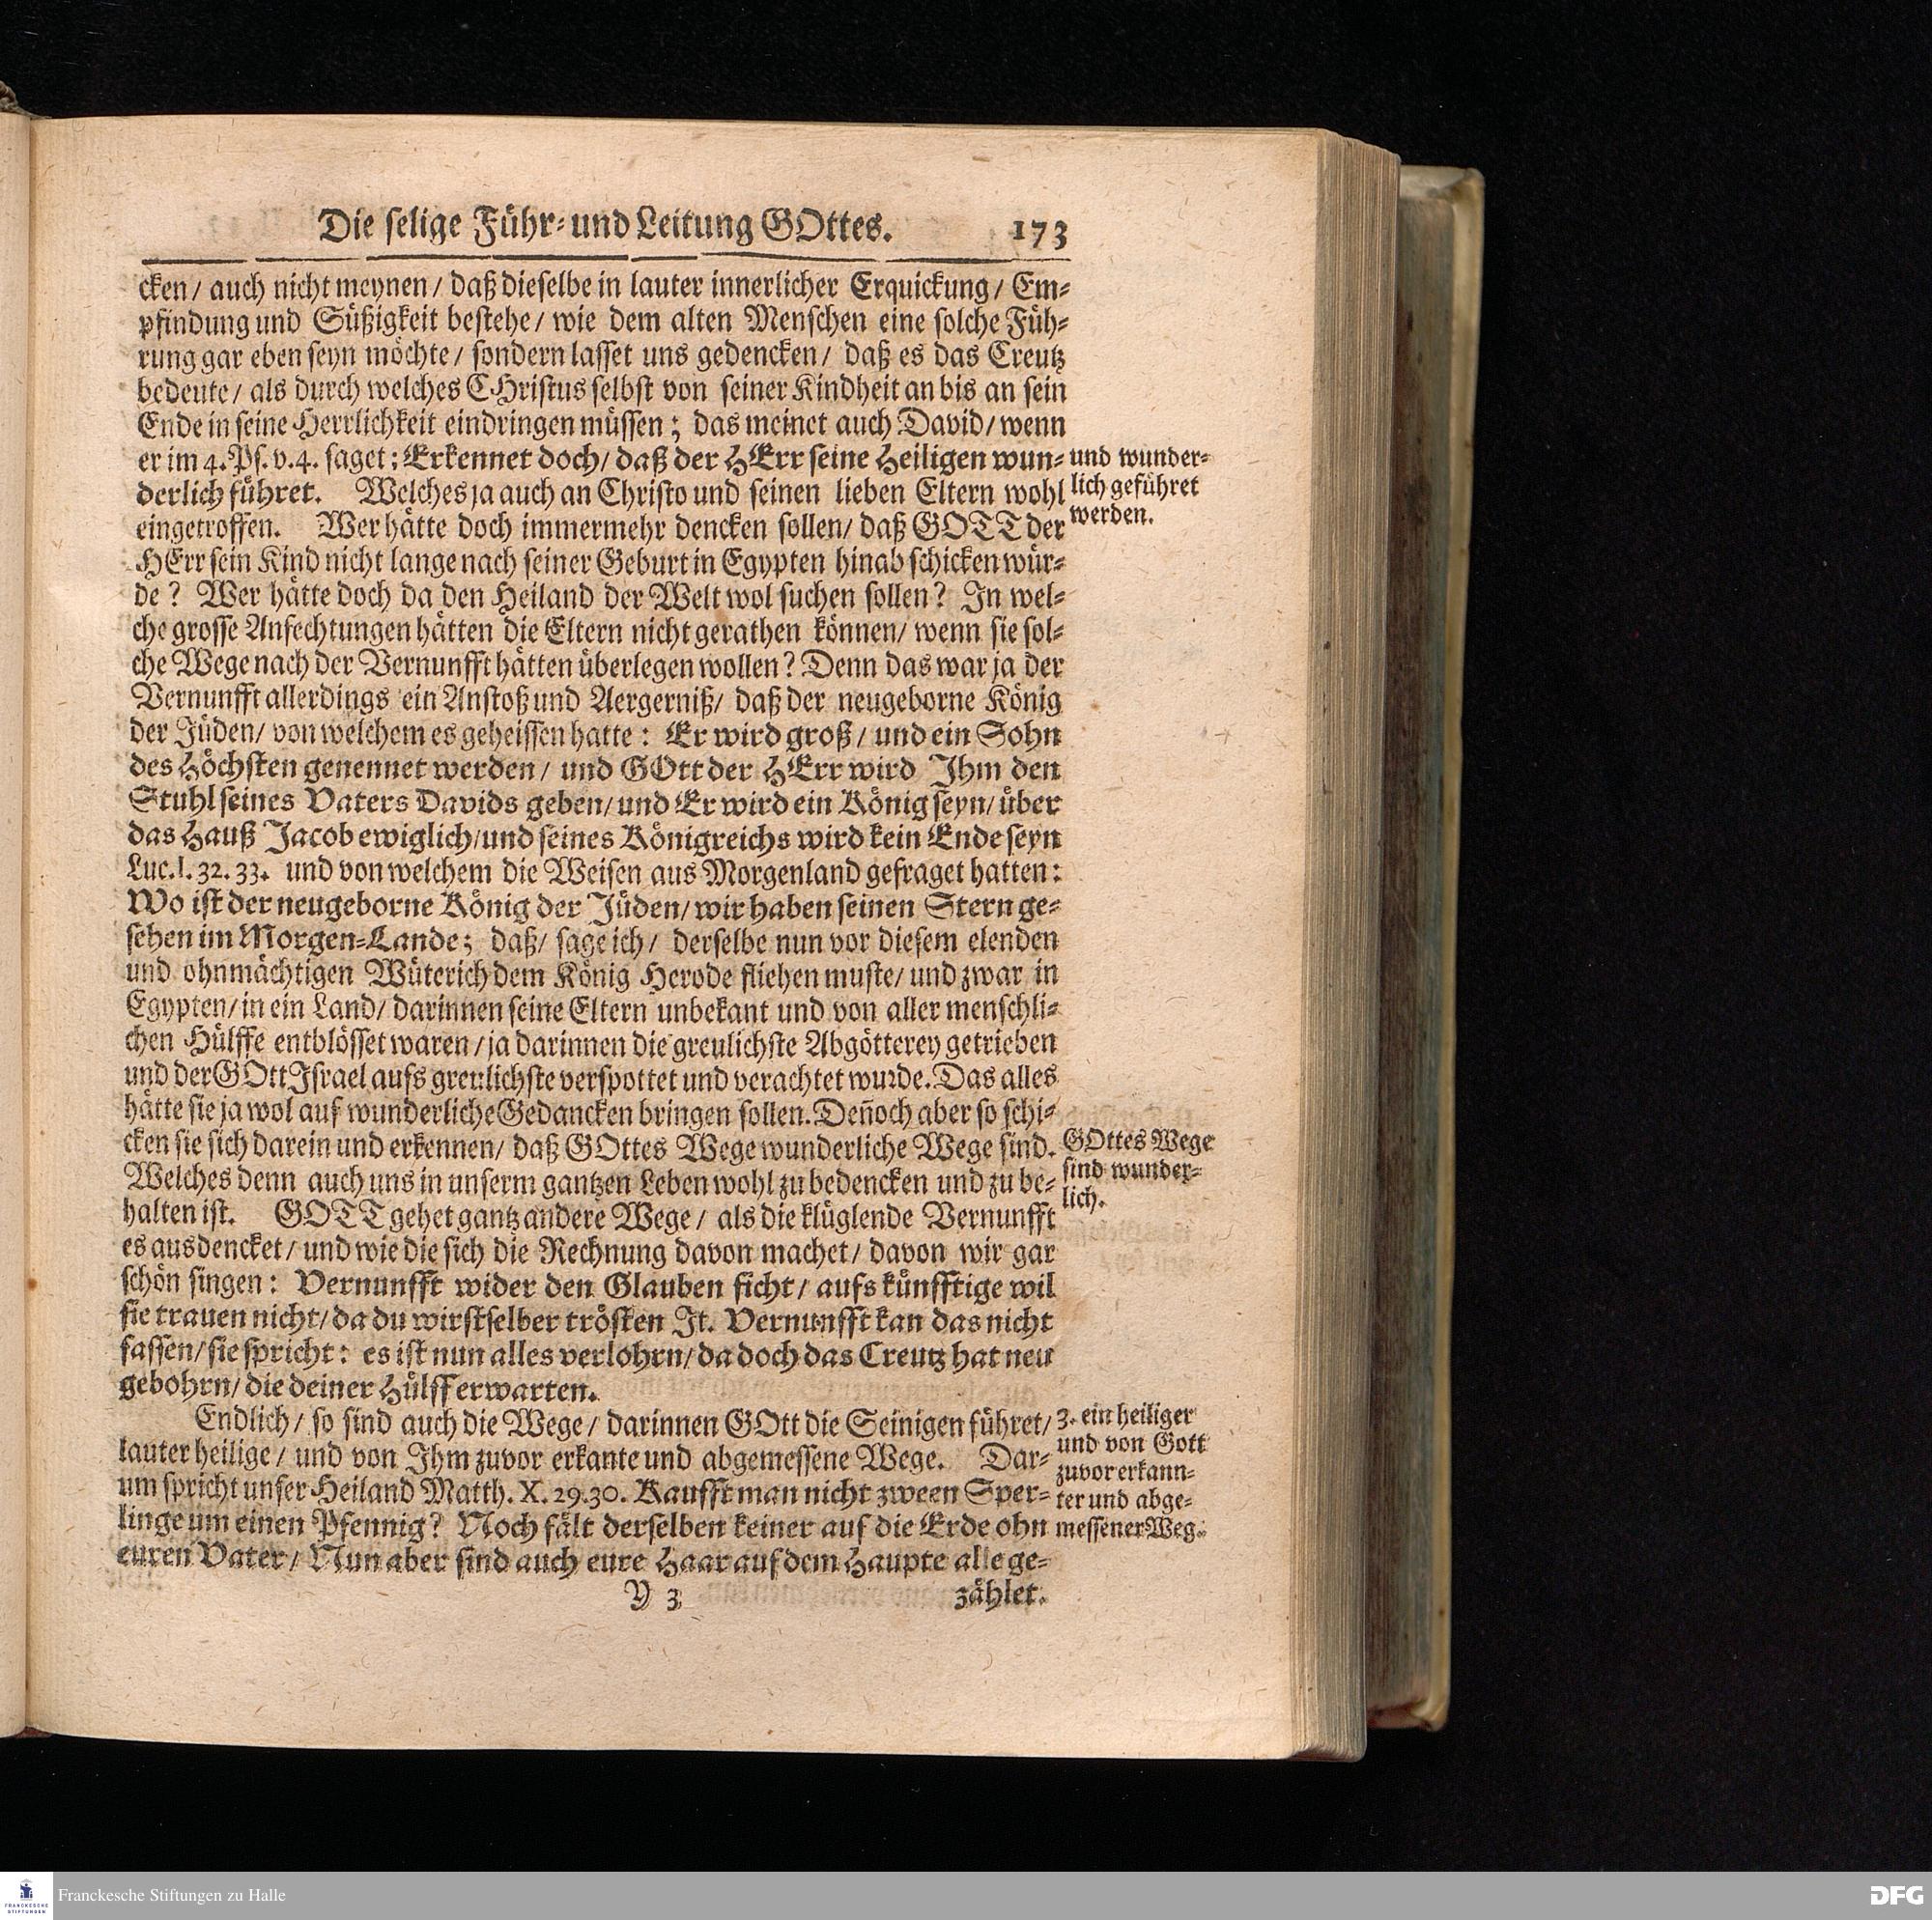 Die selige Führ- und Leitung GOttes. 173
cken/ auch nicht meynen/ daß dieselbe in lauter innerlicher Erquickung/ Em-
pfindung und Süßigkeit bestehe/ wie dem alten Menschen eine solche Füh-
rung gar eben seyn möchte/ sondern lasset uns gedencken/ daß es das Creutz
bedeute/ als durch welches CHristus selbst von seiner Kindheit an bis an sein
Ende in seine Herrlichkeit eindringen müssen; das meinet auch David/ wenn
er im 4. Ps. v. 4. saget: Erkennet doch/ daß der HErr seine Heiligen wun-
derlich führet. Welches ja auch an Christo und seinen lieben Eltern wohl
eingetroffen. Wer hätte doch immermehr dencken sollen/ daß GOTT der
HErr sein Kind nicht lange nach seiner Geburt in Egypten hinab schicken wür-
de? Wer hätte doch da den Heiland der Welt wol suchen sollen? In wel-
che grosse Anfechtungen hätten die Eltern nicht gerathen können/ wenn sie sol-
che Wege nach der Vernunfft hätten überlegen wollen? Denn das war ja der
Vernunfft allerdings ein Anstoß und Aergerniß/ daß der neugeborne König
der Jüden/ von welchem es geheissen hatte: Er wird groß/ und ein Sohn
des Höchsten genennet werden/ und GOtt der HErr wird Ihm den
Stuhl seines Vaters Davids geben/ und Er wird ein König seyn/ über
das Hauß Jacob ewiglich/ und seines Königreichs wird kein Ende seyn
Luc. I. 32. 33. und von welchem die Weisen aus Morgenland gefraget hatten:
Wo ist der neugeborne König der Jüden/ wir haben seinen Stern ge-
sehen im Morgen-Lande; daß/ sage ich/ derselbe nun vor diesem elenden
und ohnmächtigen Wüterich dem König Herode fliehen muste/ und zwar in
Egypten/ in ein Land/ darinnen seine Eltern unbekant und von aller menschli-
chen Hülffe entblösset waren/ ja darinnen die greulichste Abgötterey getrieben
und der GOtt Israel aufs greulichste verspottet und verachtet wurde. Das alles
hätte sie ja wol auf wunderliche Gedancken bringen sollen. Deñoch aber so schi-
cken sie sich darein und erkennen/ daß GOttes Wege wunderliche Wege sind.
Welches denn auch uns in unserm gantzen Leben wohl zu bedencken und zu be-
halten ist. GOTT gehet gantz andere Wege/ als die klüglende Vernunfft
es ausdencket/ und wie die sich die Rechnung davon machet/ davon wir gar
schön singen: Vernunfft wider den Glauben ficht/ aufs künfftige wil
sie trauen nicht/ da du wirst selber trösten It. Vernunfft kan das nicht
fassen/ sie spricht: es ist nun alles verlohrn/ da doch das Creutz hat neu
gebohrn/ die deiner Hülff erwarten.
Endlich/ so sind auch die Wege/ darinnen GOtt die Seinigen führet/
lauter heilige/ und von Ihm zuvor erkante und abgemessene Wege. Dar-
um spricht unser Heiland Matth. X. 29. 30. Kaufft man nicht zween Sper-
linge um einen Pfennig? Noch fält derselben keiner auf die Erde ohn
euren Vater/ Nun aber sind auch eure Haar auf dem Haupte alle ge-
Y 3 zählet.
und wunder-
lich geführet
werden.
GOttes Wege
sind wunder-
lich.
3. ein heiliger
und von Gott
zuvor erkann-
ter und abge-
messener Weg.
Franckesche Stiftungen zu Halle
FRANCKESCHE
STIFTUNGEN
DFG